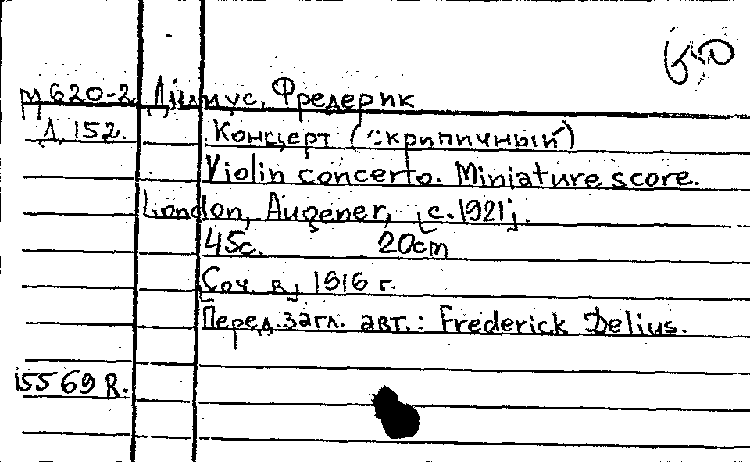 м620-2 Дилиус, Фредерик
Д 152. Концерт (скрипичный)
Violin concerto. Miniature score.
London, Augener, [c.1921].
45с. 20cm
[Соч. в] 1916 г.
Перед. загл. авт.: Frederick Delius.
15569 R.